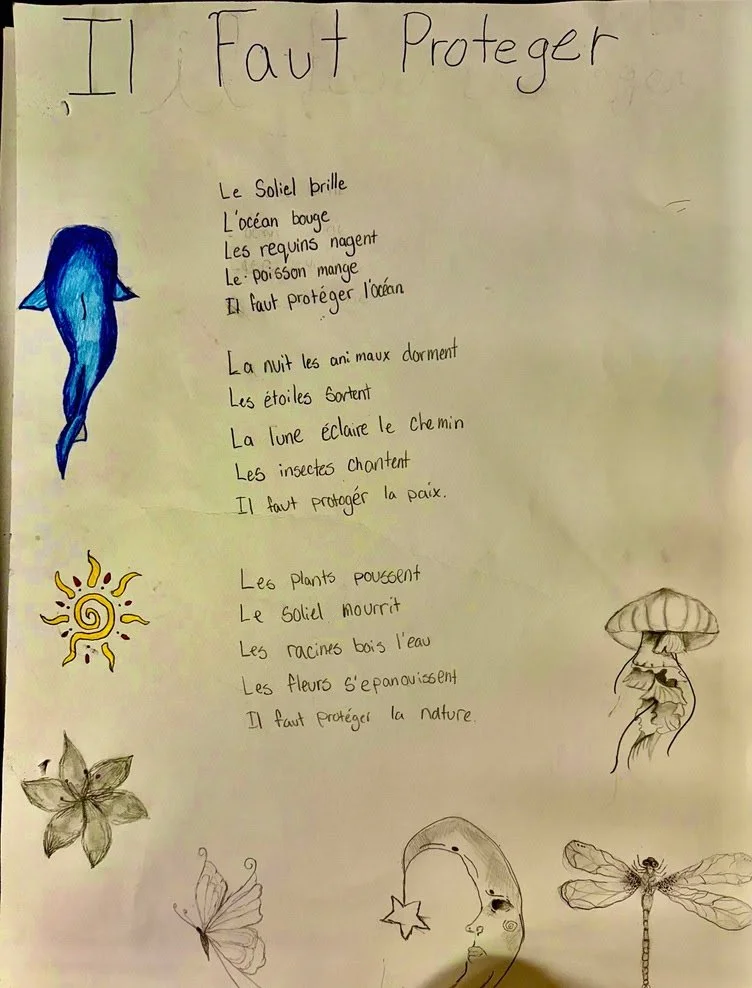 Il Faut Proteger
Le Soliel brille
L'océan bouge
Les requins nagent
Le poisson mange
Il faut protéger l'océan
La nuit les animaux dorment
Les étoiles Sortent
La lune éclaire le chemin
Les insectes chantent
Il faut protogér la paix.
Les plants poussent
Le soliel nourrit
Les racines bois l'eau
Les fleurs s'epanouissent
Il faut protéger la nature.